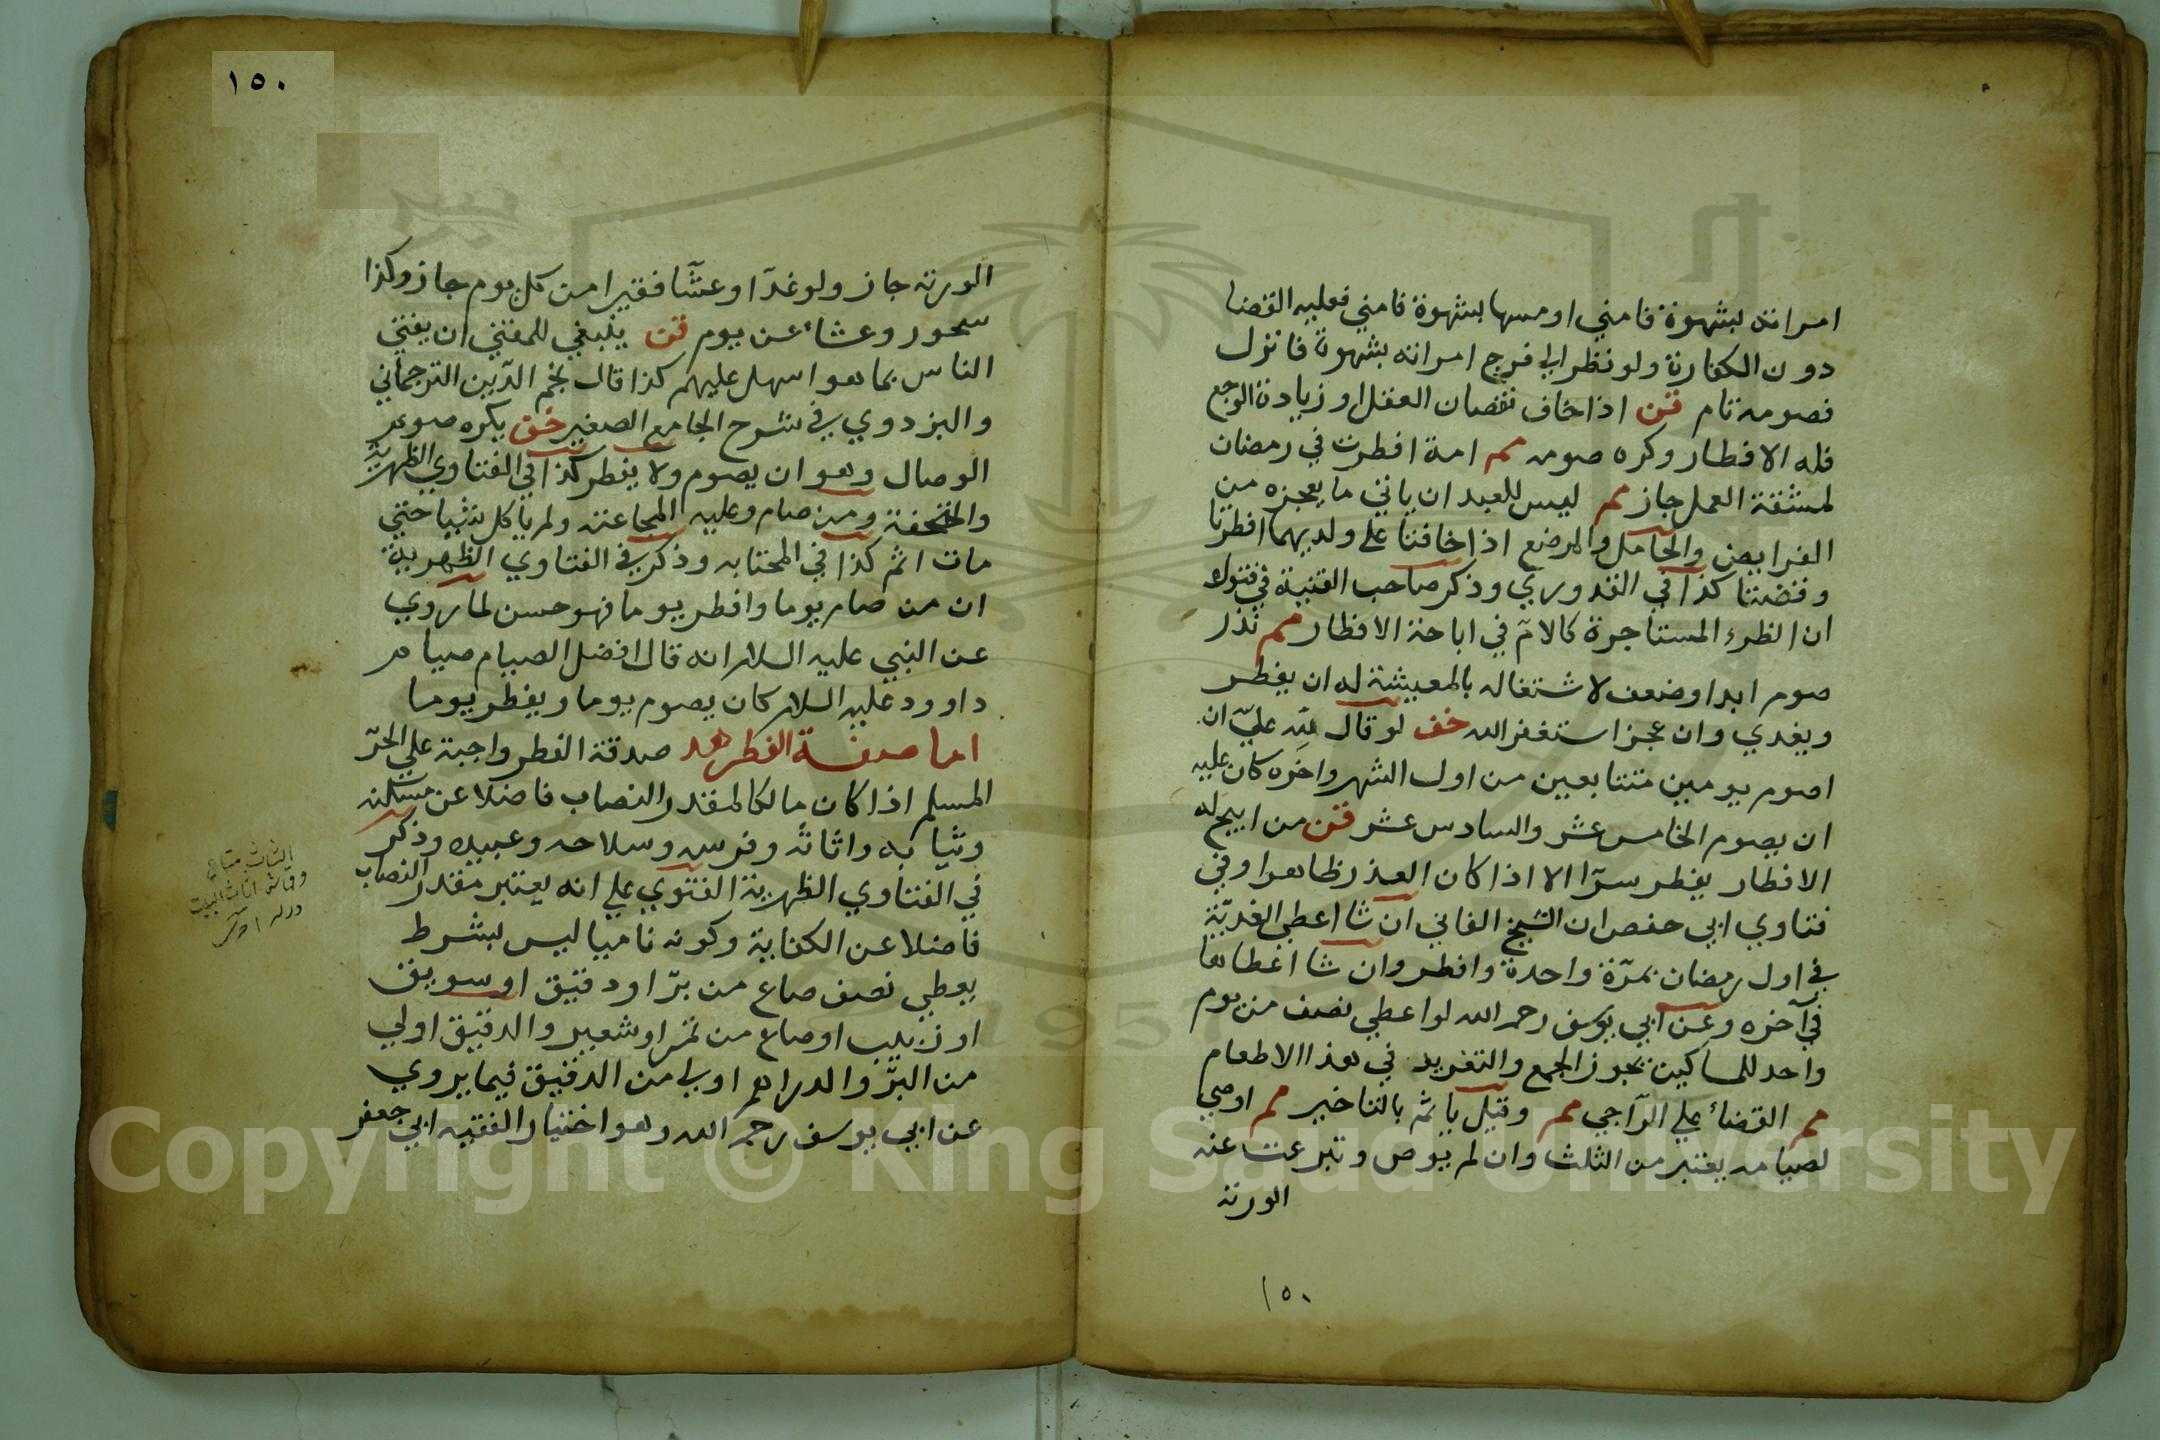 امراته بشهوة فامني اومسها بشهوة فامني فعليه القضا
دون الكفارة ولو نظر الي فرج امراته بشهوة فانزل
فصومه تام قن اذا خاف نقصان العقل او زيادة الوجع
فله الافطار وكره صومه مم امة افطرت في رمضان
لمشقة العمل جاز مم ليس للعبد ان ياتي ما يعجزه من
الفرايض والحامل والمرضع اذا خافتا علي ولديهما افطرتا
وقضتا كذا في القدوري وذكر صاحب القنية في فتواه
ان الظرء المستاجرة كالام في اباحة الافطار مم نذر
صوم ابدا وضعف لاشتغاله بالمعيشة له ان يفطر
ويفدي وان عجز استغفر الله خف لو قال لله عليّ ان
اصوم يومين متتابعين من اول الشهر واخره كان عليه
ان يصوم الخامس عشر والسادس عشر قن من ابيح له
الافطار يفطر سرّا الا اذا كان العذر ظاهرا وفي
فتاوي ابي حفص ان الشيخ الفاني ان شا اعطي الفدية
في اول رمضان بمرّة واحدة وافطر وان شا اعطاها
في آخره وعن ابي يوسف رحمه الله لو اعطي نصف من يوم
واحد للمساكين يجوز الجمع والتفريد في هذا الاطعام
مم القضاء علي الرّاجي مم وقيل ياثم بالتاخير مم اوصي
لصيامه يعتبر من الثلث وان لم يوص وتبرعت عنه
الورثة
١٥٠
١٥٠
الورثة جاز ولو غدّا وعشّا فقيرا من كل يوم جاز وكذا
سحور وعشاء عن يوم قن ينبغي للمفتي ان يفتي
الناس بما هو اسهل عليهم كذا قال نجم الدّين الترجماني
والبزدوي في شرح الجامع الصغير خق يكره صوم
الوصال وهو ان يصوم ولا يفطر كذا في الفتاوي الظهرية
والتحفة ومن صام وعليه المجاعة ولم ياكل شيا حتي
مات اثم كذا في المحتابه وذكر في الفتاوي الظهرية
ان من صام يوما وافطر يوما فهو حسن لما روي
عن النبي عليه السلام انه قال افضل الصيام صيام
داوود عليه السلام كان يصوم يوما ويفطر يوما
اما صدقة الفطر هد صدقة الفطر واجبة علي الحرّ
المسلم اذا كان مالكا لمقدر النصاب فاضلا عن مسكنه
وثيابه واثاثه وفرسه وسلاحه وعبيده وذكر
في الفتاوي الظهرية الفتوي علي انه يعتبر مقدر النصاب
فاضلا عن الكفاية وكونه ناميا ليس بشرط
يعطي نصف صاع من برّ او دقيق او سويق
او زبيب او صاع من تمر او شعير والدقيق اولي
من البرّ والدراهم اولي من الدقيق فيما يروي
عن ابي يوسف رحمه الله وهو اختيار الفقيه ابي جعفر
متاع
اثاث البيت
Copyright © King Saud University
1957